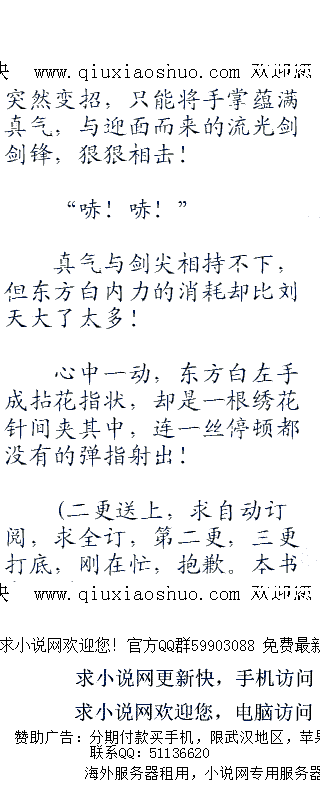 快 www.qiuxiaoshuo.com 欢迎您
突然变招，只能将手掌蕴满
真气，与迎面而来的流光剑
剑锋，狠狠相击！
“哧！哧！”
真气与剑尖相持不下，
但东方白内力的消耗却比刘
天大了太多！
心中一动，东方白左手
成拈花指状，却是一根绣花
针间夹其中，连一丝停顿都
没有的弹指射出！
(二更送上，求自动订
阅，求全订，第二更，三更
打底，刚在忙，抱歉。本书
快 www.qiuxiaoshuo.com 欢迎您
求小说网欢迎您！官方QQ群59903088 免费最新
求小说网更新快，手机访问
求小说网欢迎您，电脑访问
赞助广告：分期付款买手机，限武汉地区，苹果
联系QQ：51136620
海外服务器租用，小说网专用服务器